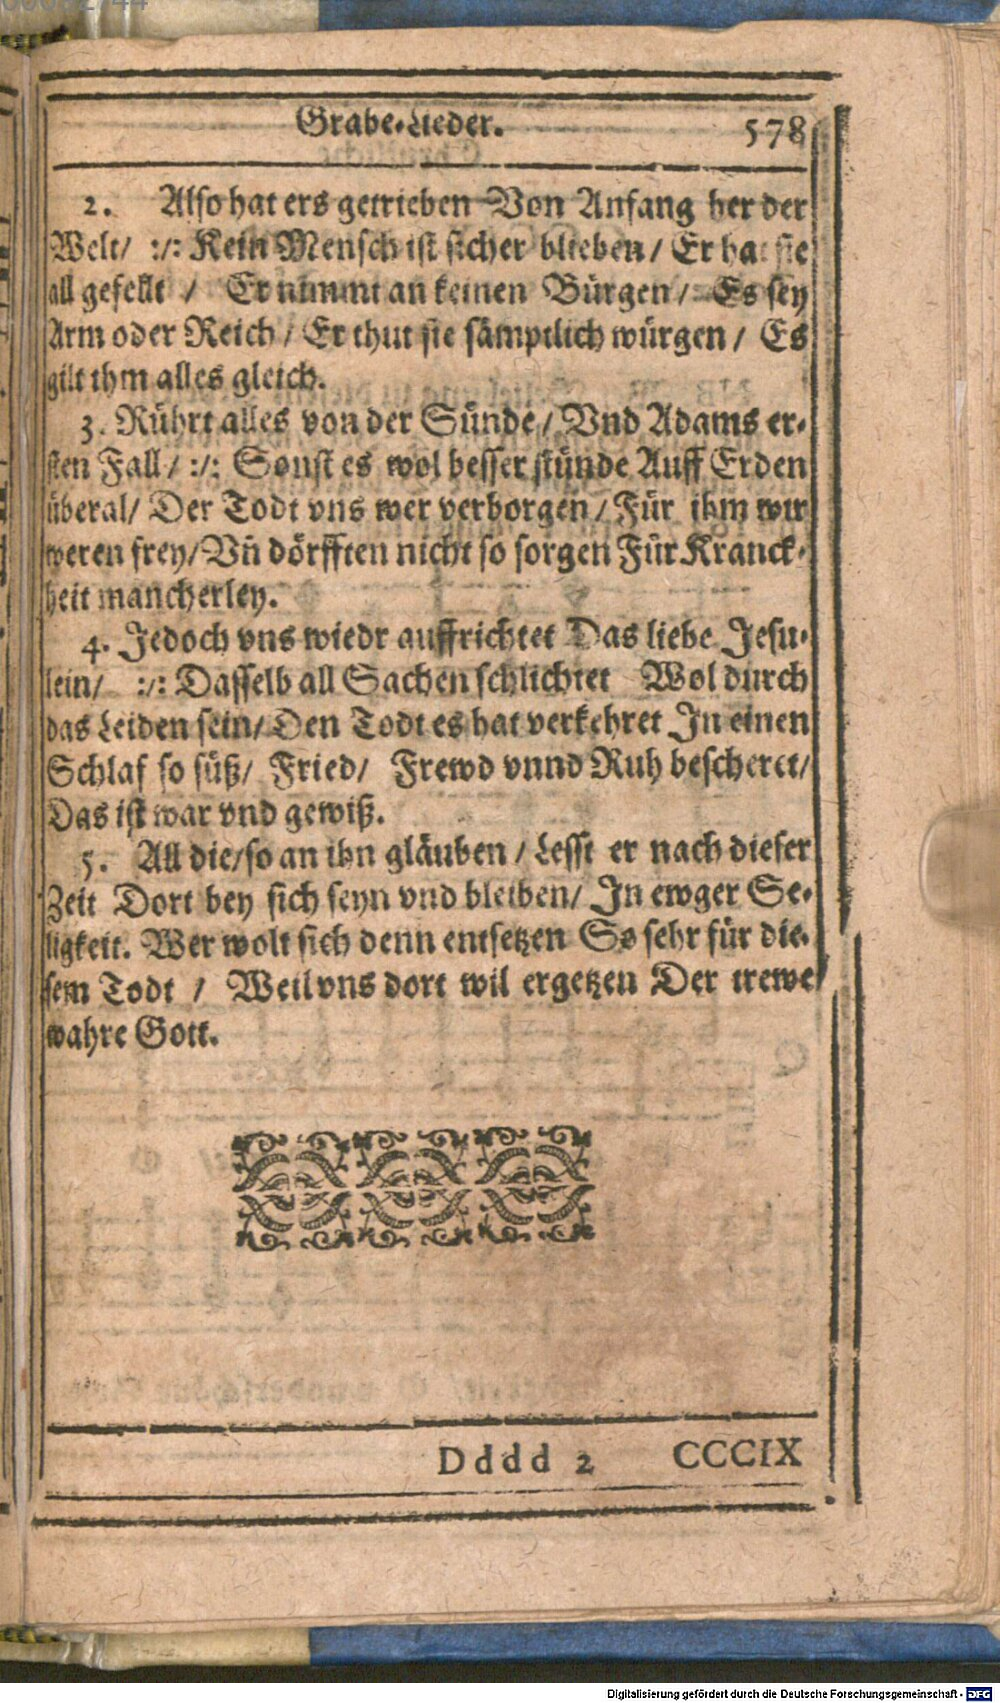 Grabe-Lieder. 578
2. Also hat ers getrieben Von Anfang her der
Welt/ :/: Kein Mensch ist sicher blieben / Er hat sie
all gefellt / Er nimmt an keinen Bürgen / Es sey
Arm oder Reich / Er thut sie sämptlich würgen / Es
gilt ihm alles gleich.
3. Rührt alles von der Sünde / Vnd Adams er-
sten Fall / :/: Sonst es wol besser stünde Auff Erden
überal/ Der Todt vns wer verborgen / Für ihm wir
weren frey/ Vñ dörfften nicht so sorgen Für Kranck-
heit mancherley.
4. Jedoch vns wiedr auffrichtet Das liebe Jesu-
lein/ :/: Dasselb all Sachen schlichtet Wol durch
das Leiden sein/ Den Todt es hat verkehret In einen
Schlaf so süß/ Fried/ Frewd vnnd Ruh bescheret/
Das ist war vnd gewiß.
5. All die/ so an ihn gläuben / Lesst er nach dieser
Zeit Dort bey sich seyn vnd bleiben/ In ewger Se-
ligkeit. Wer wolt sich denn entsetzen So sehr für die-
sem Todt / Weil vns dort wil ergetzen Der trewe
wahre Gott.
Dddd 2 CCCIX
Digitalisierung gefördert durch die Deutsche Forschungsgemeinschaft - DFG